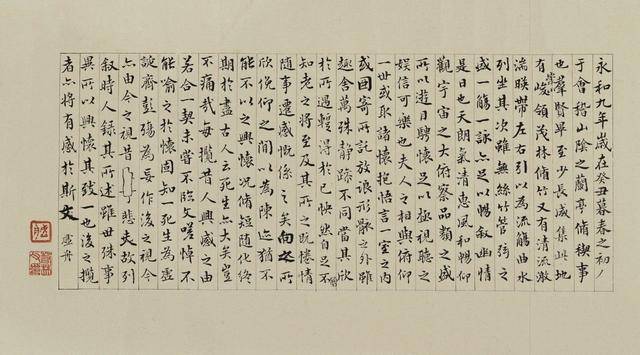 永和九年歲在癸丑暮春之初
于會稽山陰之蘭亭脩稧事
也羣賢畢至少長咸集此地
有崇山峻領茂林脩竹又有清流激
湍暎帶左右引以為流觴曲水
列坐其次雖無絲竹管弦之
盛一觴一詠亦足以暢敘幽情
是日也天朗氣清惠風和暢仰
觀宇宙之大俯察品類之盛
所以遊目騁懷足以極視聽之
娛信可樂也夫人之相與俯仰
一世或取諸懷抱悟言一室之內
或因寄所託放浪形骸之外雖
趣舍萬殊靜躁不同當其欣
於所遇蹔得於己快然自足不
知老之將至及其所之既惓情
隨事遷感慨係之矣向之所
欣俛仰之間以為陳迹猶不
能不以之興懷況脩短隨化終
期於盡古人云死生亦大矣豈
不痛哉每攬昔人興感之由
若合一契未嘗不臨文嗟悼不
能喻之於懷固知死生為虛
誕齊彭殤為妄作後之視今
亦由今之視昔悲夫故列
敘時人錄其所述雖世殊事
異所以興懷其致一也後之攬
者亦將有感於斯文 虛舟